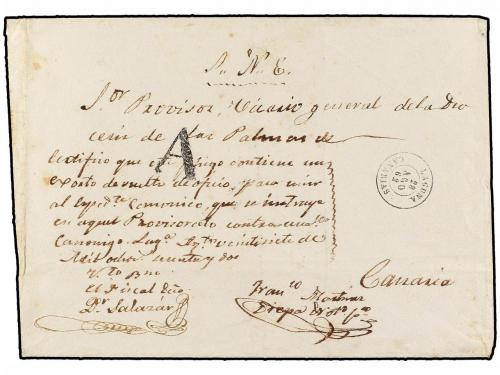 S. N. E.
Sor Provisor, Vicario general de la Dio
cesis de Las Palmas de
Certifico que este pliego contiene un
exorto devuelto de oficio, para unir
al expte Canonico, que se instruye
en aquel Provisorato contra un
Canonigo. Lag.ª Agto veintisiete de
Mil ochoc. sesenta y dos
V.to B.no
El Fiscal Ecco
Dr Salazar
Fran.co Martinez
Canaria
A
LAGUNA
28
AGO
62
CANARIAS